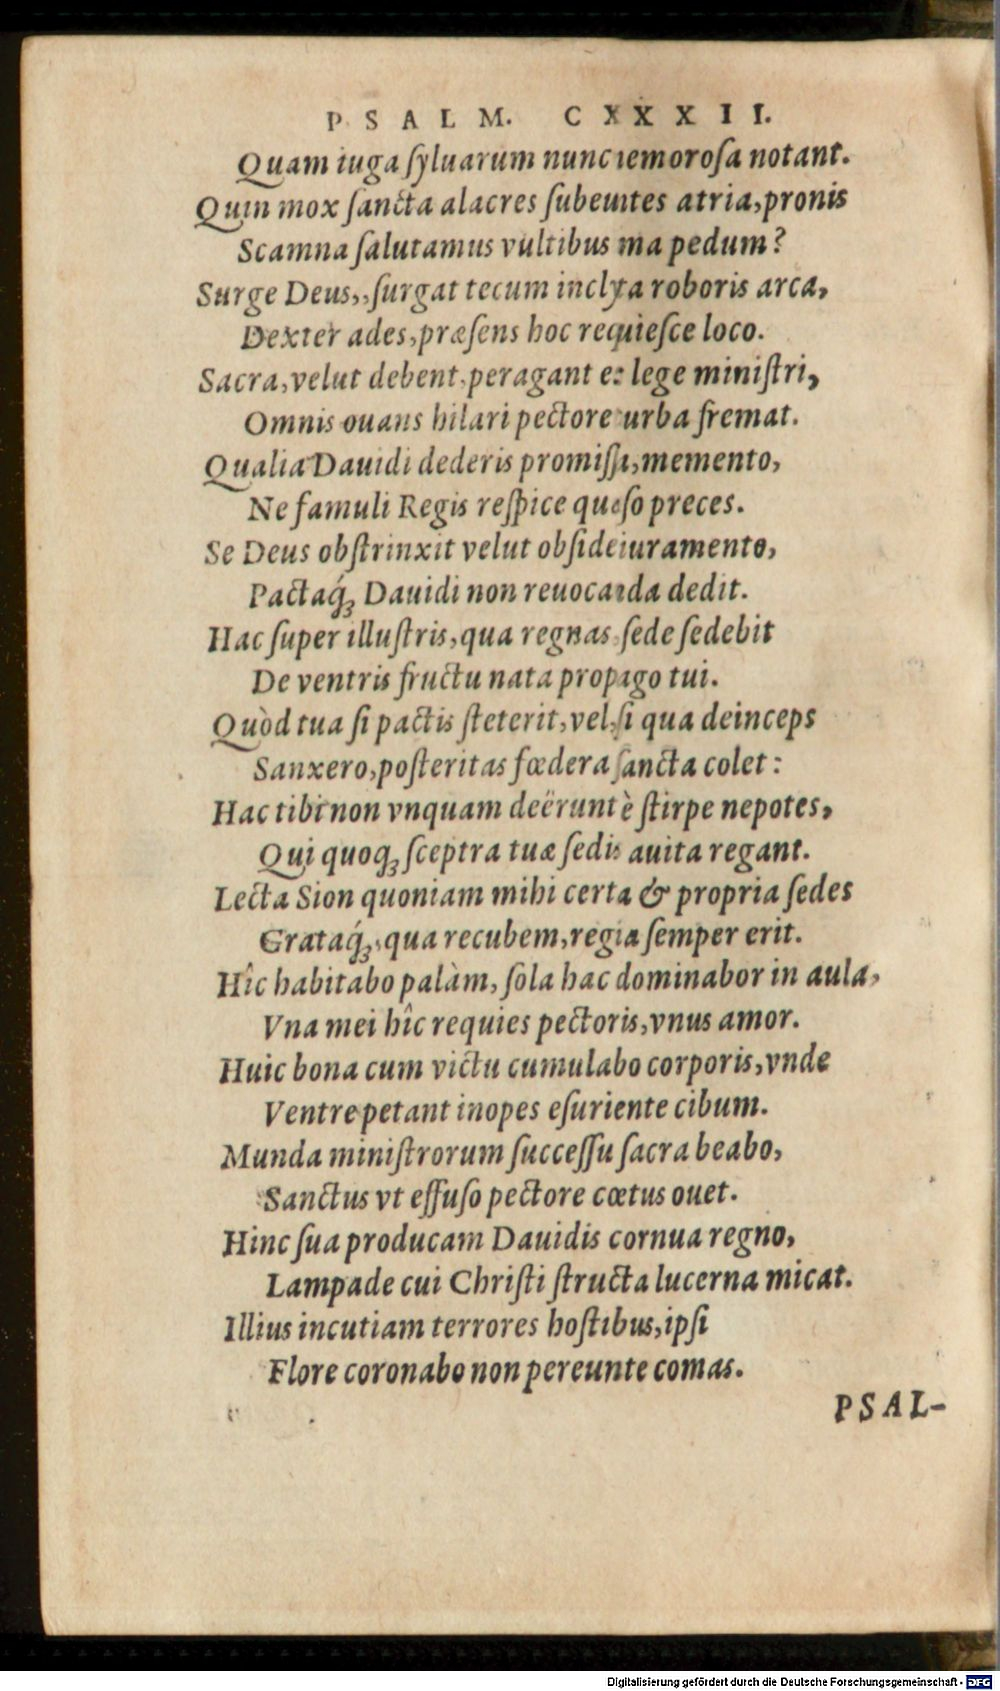 PSALM. CXXXII.
Quam iuga ſyluarum nunc nemoroſa notant.
Quin mox ſancta alacres ſubeuntes atria, pronis
Scamna ſalutamus vultibus ima pedum?
Surge Deus,, ſurgat tecum inclyta roboris arca,
Dexter ades, præſens hoc requieſce loco.
Sacra, velut debent, peragant ex lege miniſtri,
Omnis ouans hilari pectore turba fremat.
Qualia Dauidi dederis promiſſa, memento,
Ne famuli Regis reſpice quæſo preces.
Se Deus obſtrinxit velut obſide iuramento,
Pactaq́ꝫ Dauidi non reuocanda dedit.
Hac ſuper illuſtris, qua regnas ſede ſedebit
De ventris fructu nata propago tui.
Quòd tua ſi pactis ſteterit, vel, ſi qua deinceps
Sanxero, poſteritas fœdera ſancta colet:
Hac tibi non vnquam deërunt è ſtirpe nepotes,
Qui quoqꝫ ſceptra tuæ ſedis auita regant.
Lecta Sion quoniam mihi certa & propria ſedes
Grataq́ꝫ, qua recubem, regia ſemper erit.
Hîc habitabo palàm, ſola hac dominabor in aula,
Vna mei hîc requies pectoris, vnus amor.
Huic bona cum victu cumulabo corporis, vnde
Ventre petant inopes eſuriente cibum.
Munda miniſtrorum ſucceſſu ſacra beabo,
Sanctus vt effuſo pectore cœtus ouet.
Hinc ſua producam Dauidis cornua regno,
Lampade cui Chriſti ſtructa lucerna micat.
Illius incutiam terrores hoſtibus, ipſi
Flore coronabo non pereunte comas.
PSAL-
Digitalisierung gefördert durch die Deutsche Forschungsgemeinschaft - DFG